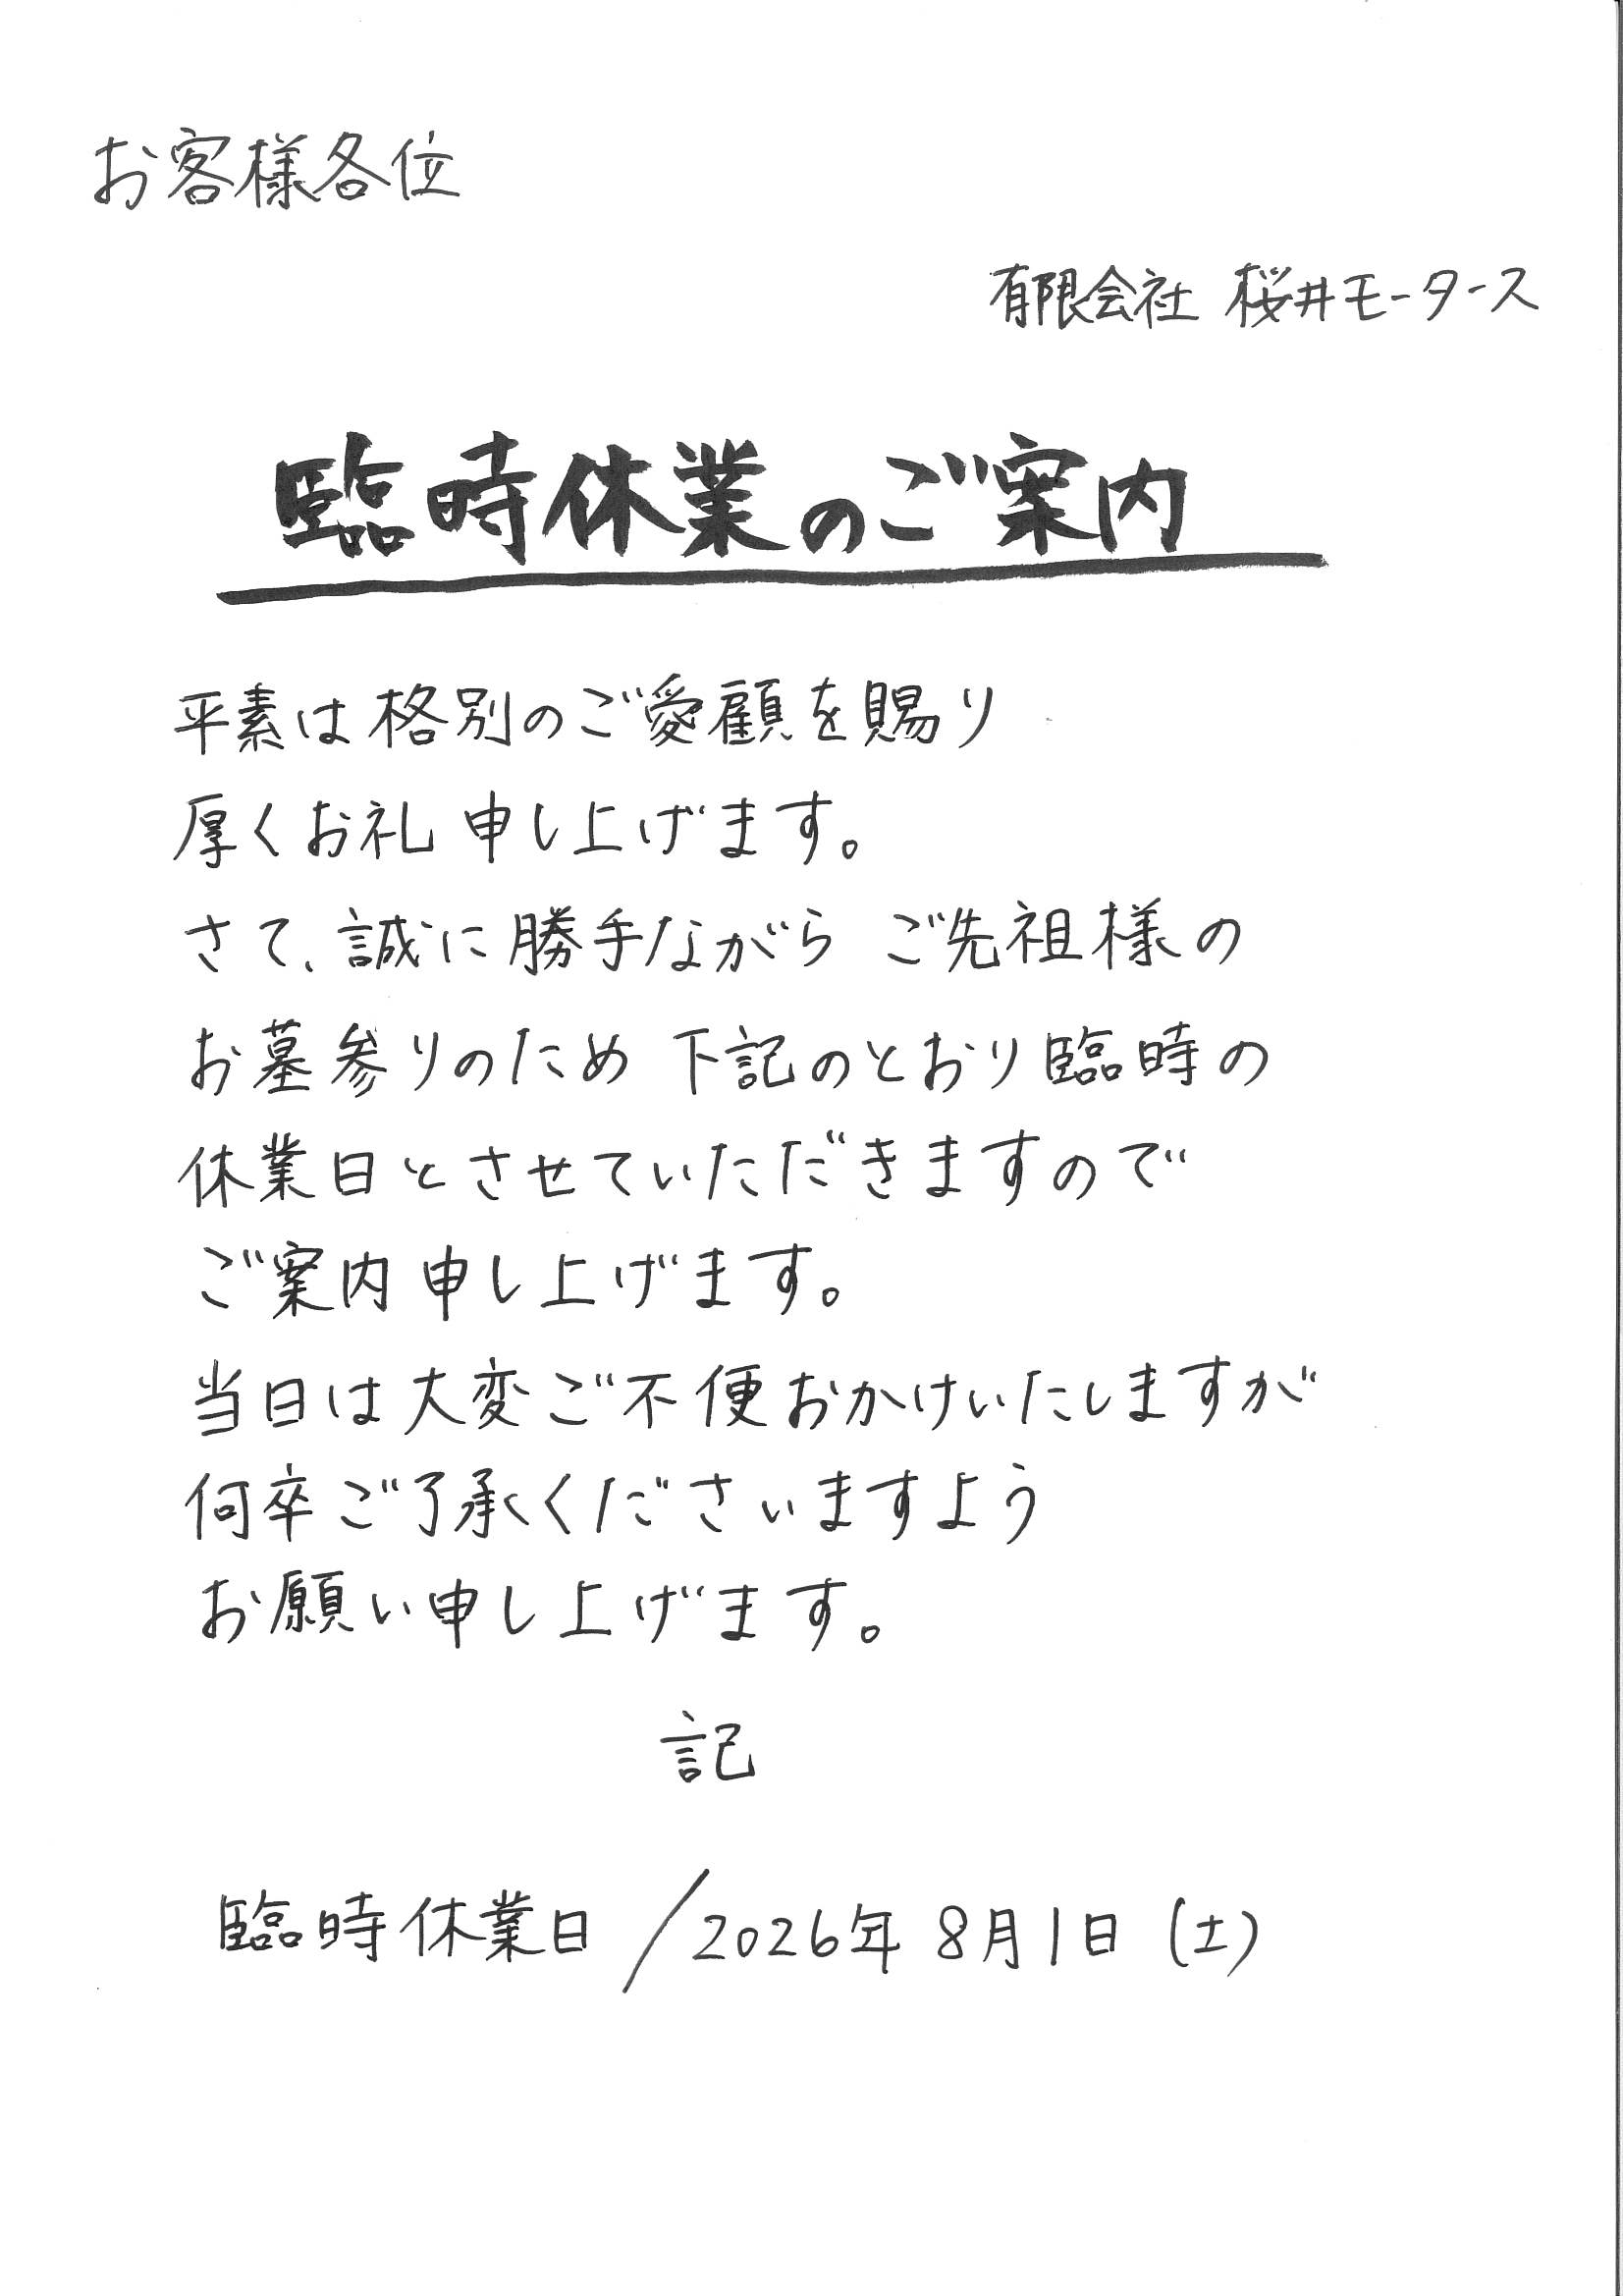 お客様各位
有限会社 桜井モータース
臨時休業のご案内
平素は格別のご愛顧を賜り
厚くお礼申し上げます。
さて、誠に勝手ながら ご先祖様の
お墓参りのため 下記のとおり臨時の
休業日とさせていただきますので
ご案内申し上げます。
当日は大変ご不便おかけいたしますが
何卒ご了承くださいますよう
お願い申し上げます。
記
臨時休業日/2026年 8月1日 (土)